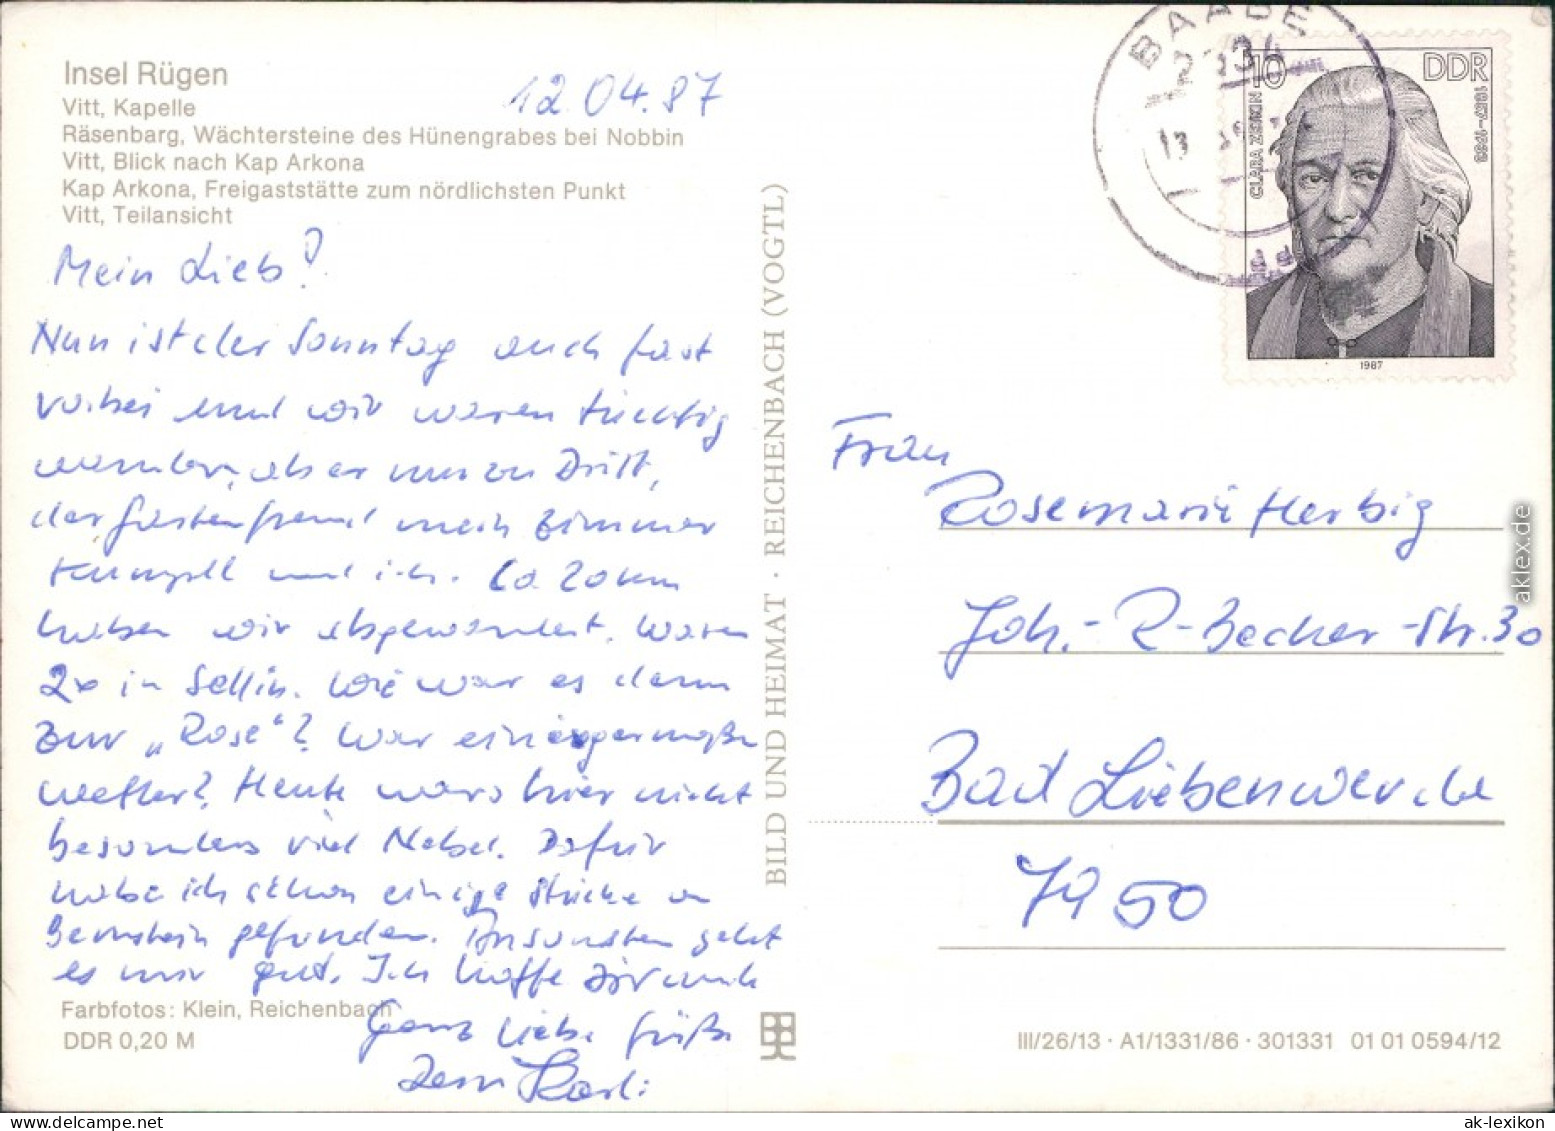 Insel Rügen
Vitt, Kapelle
Räsenbarg, Wächtersteine des Hünengrabes bei Nobbin
Vitt, Blick nach Kap Arkona
Kap Arkona, Freigaststätte zum nördlichsten Punkt
Vitt, Teilansicht
12.04.87
Mein Lieb!
Nun ist der Sonntag auch fast
vorbei und wir waren tüchtig
wandern, aber nur zu Dritt,
der mein Zimmer
und ich. Ca. 20 km
haben wir abgewandert. Waren
2x in Sellin. Wie war es denn
zur „Rose“? War einigermaße
Wetter? Heute wars hier nicht
besonders viel Nebel. Dafür
habe ich schon einige Stücke
Bernstein gefunden. Ansonsten geht
es mir gut. Ich hoffe Dir auch
Ganz liebe Grüße
Dein Karli
Farbfotos: Klein, Reichenbach
DDR 0,20 M
BILD UND HEIMAT · REICHENBACH (VOGTL)
BAABE
10 DDR
CLARA ZETKIN
1857-1933
1987
Frau
Rosemarie Herbig
Joh.-R-Becher-Str. 30
Bad Liebenwerda
7950
III/26/13 · A1/1331/86 · 301331 01 01 0594/12
aklex.de
ak-lexikon